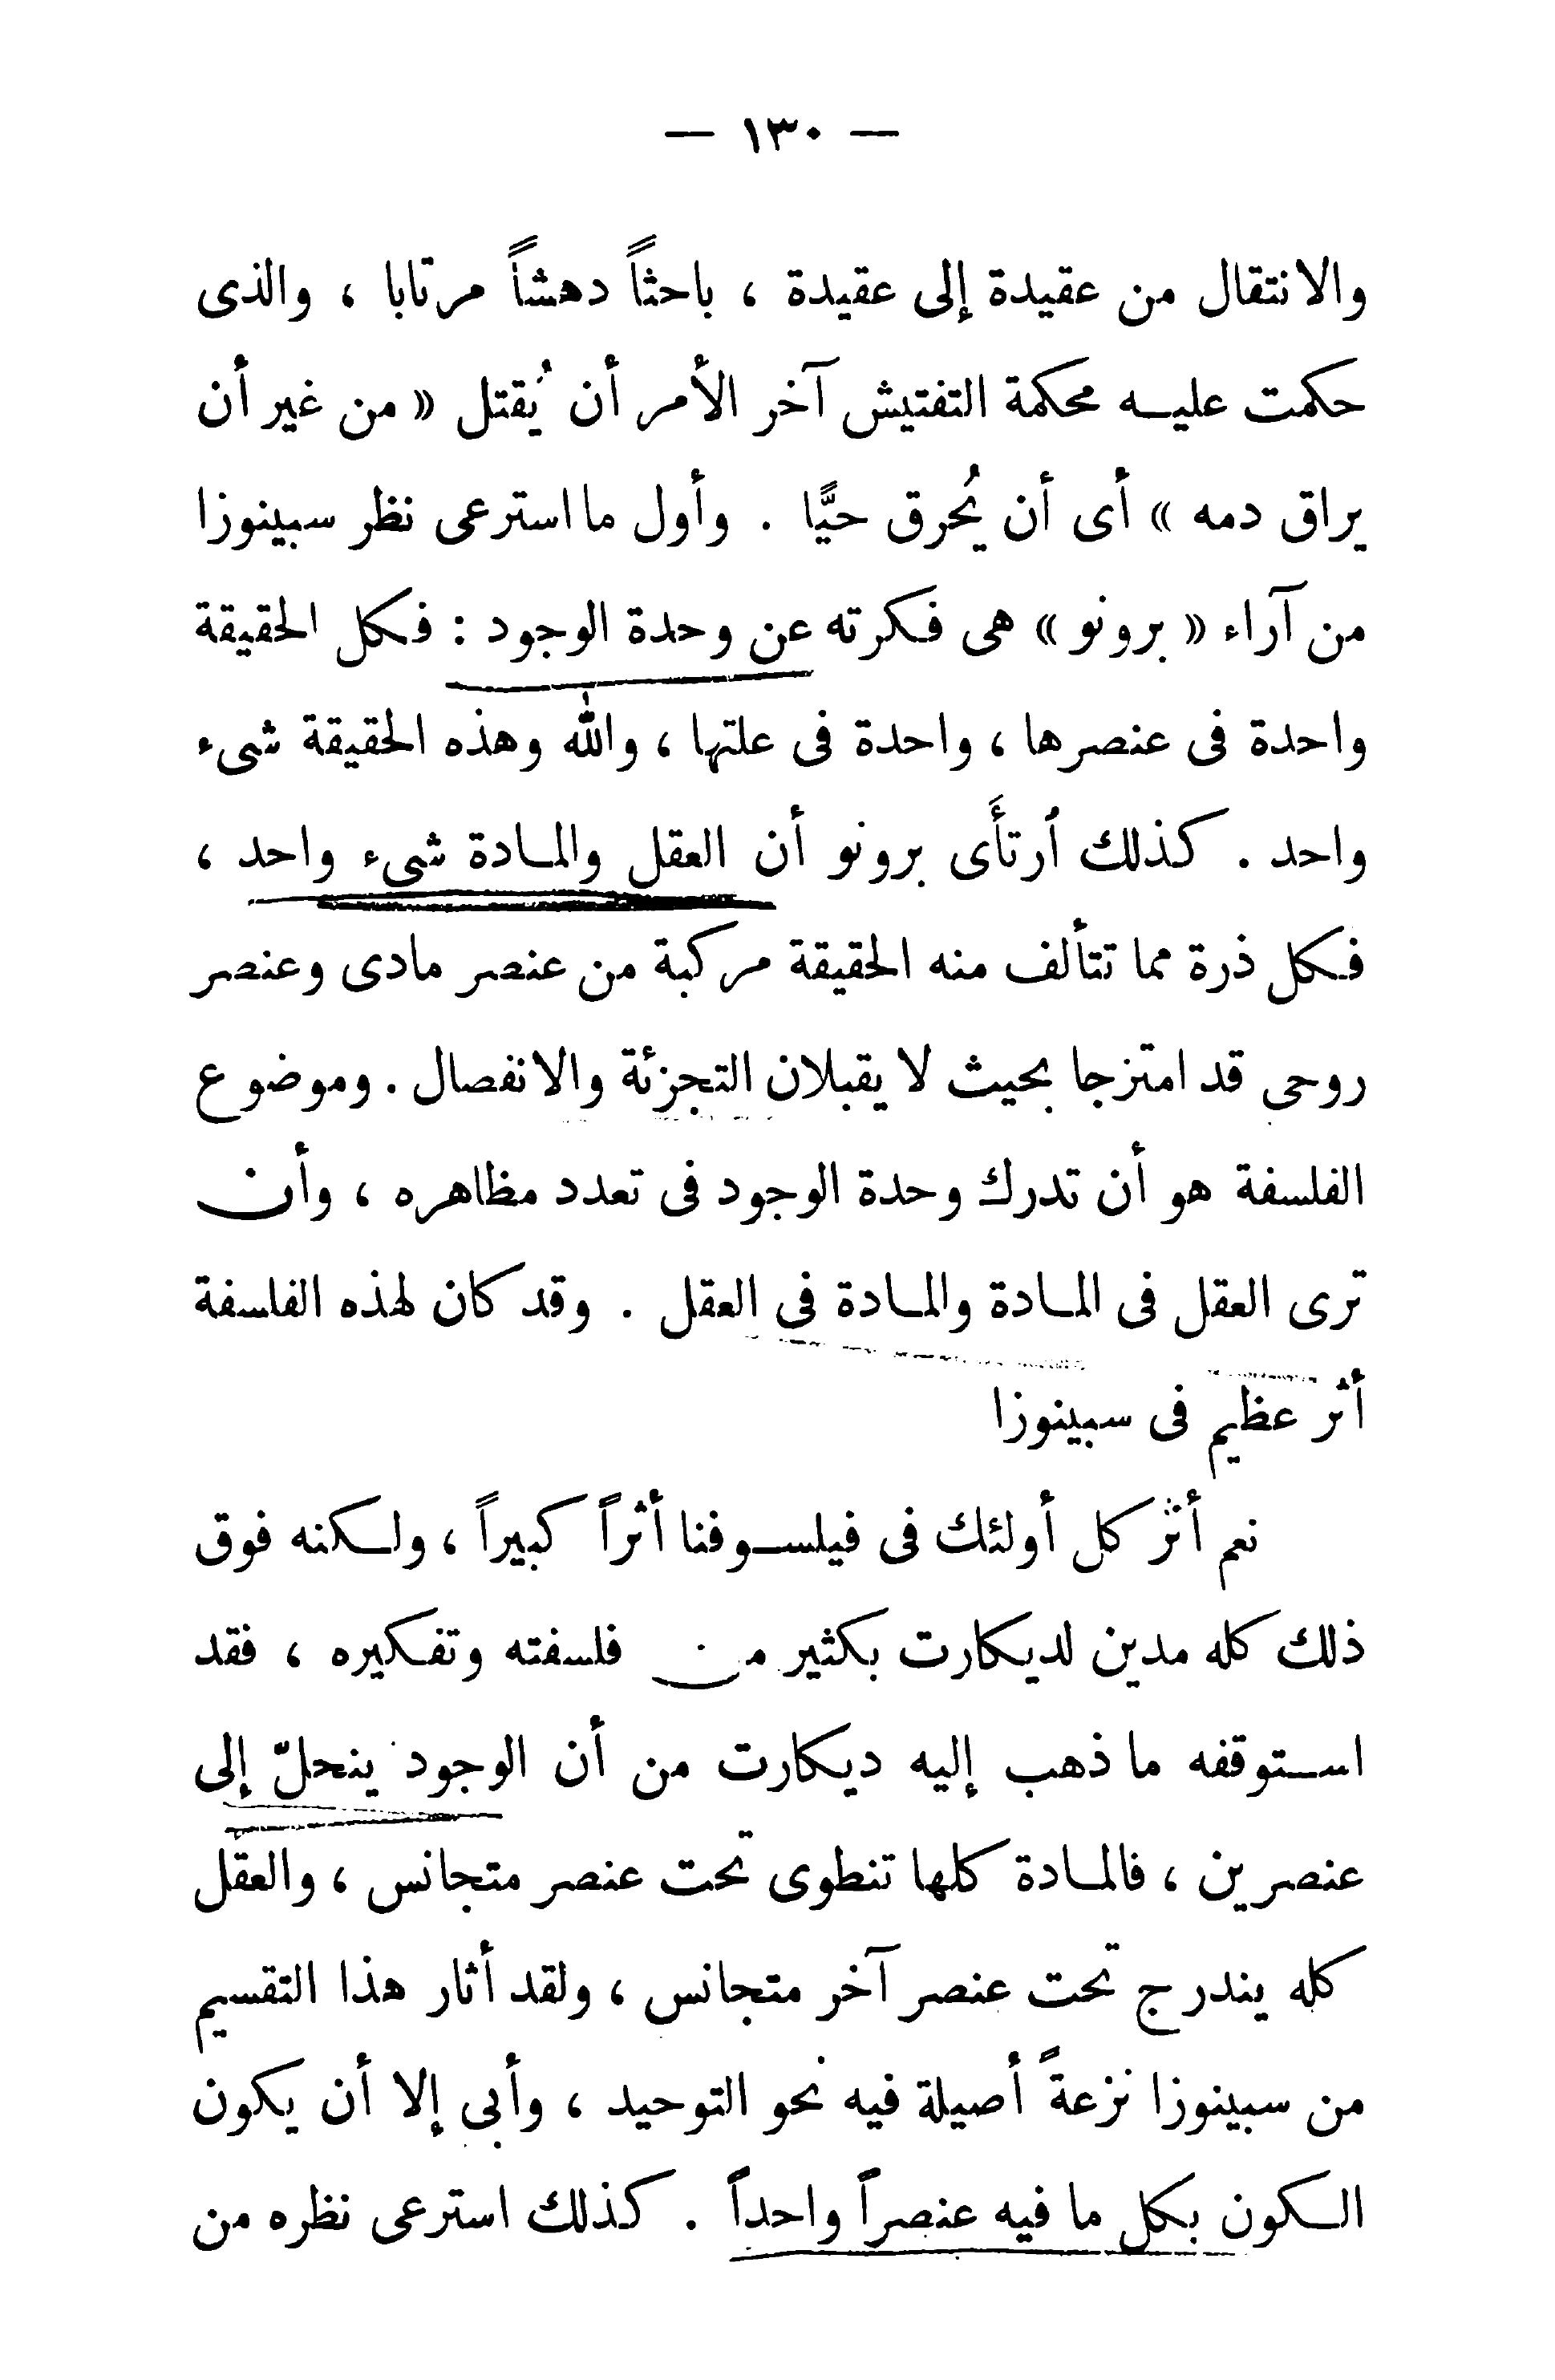 — ١٣٠ —
والانتقال من عقيدة إلى عقيدة ، باحثاً دهشاً مرتابا ، والذى
حكمت عليه محكمة التفتيش آخر الأمر أن يُقتل « من غير أن
يراق دمه » أى أن يُحرق حيًّا . وأول ما استرعى نظر سبينوزا
من آراء « برونو » هى فكرته عن وحدة الوجود : فكل الحقيقة
واحدة فى عنصرها ، واحدة فى علتها ، والله وهذه الحقيقة شىء
واحد . كذلك اُرتأَى برونو أن العقل والمادة شىء واحد ،
فكل ذرة مما تتألف منه الحقيقة مركبة من عنصر مادى وعنصر
روحى قد امتزجا بحيث لا يقبلان التجزئة والانفصال . وموضوع
الفلسفة هو أن تدرك وحدة الوجود فى تعدد مظاهره ، وأن
ترى العقل فى المادة والمادة فى العقل . وقد كان لهذه الفلسفة
أثر عظيم فى سبينوزا
نعم أثر كل أولئك فى فيلسوفنا أثراً كبيراً ، ولكنه فوق
ذلك كله مدين لديكارت بكثير من فلسفته وتفكيره ، فقد
استوقفه ما ذهب إليه ديكارت من أن الوجود ينحلّ إلى
عنصرين ، فالمادة كلها تنطوى تحت عنصر متجانس ، والعقل
كله يندرج تحت عنصر آخر متجانس ، ولقد أثار هذا التقسيم
من سبينوزا نزعةً أصيلة فيه نحو التوحيد ، وأبى إلا أن يكون
الكون بكل ما فيه عنصراً واحداً . كذلك استرعى نظره من